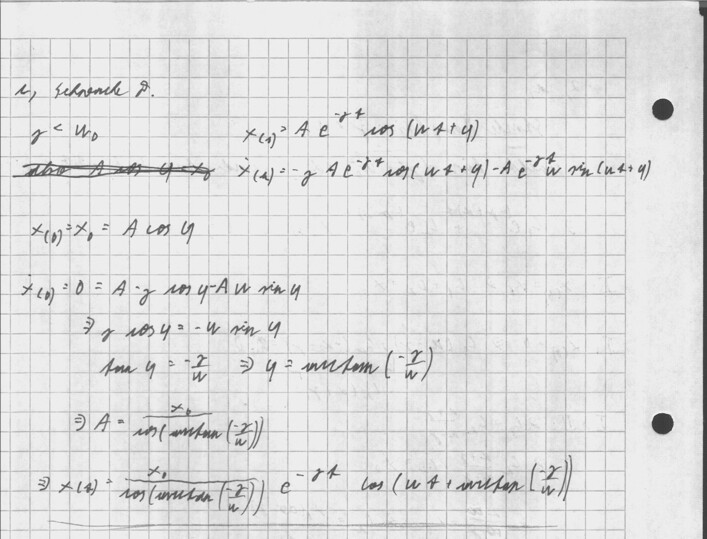 i, Schwache D.
γ < ω₀ x(t) = A e^-γt cos (ωt+φ)
ẋ(t) = -γ A e^-γt cos(ωt+φ) - A e^-γt ω sin(ωt+φ)
x(0) = x₀ = A cos φ
ẋ(0) = 0 = A -γ cos φ - A ω sin φ
⇒ γ cos φ = -ω sin φ
tan φ = -γ/ω ⇒ φ = arctan (-γ/ω)
⇒ A = x₀/cos(arctan(-γ/ω))
⇒ x(t) = x₀/cos(arctan(-γ/ω)) e^-γt cos (ωt + arctan(-γ/ω))